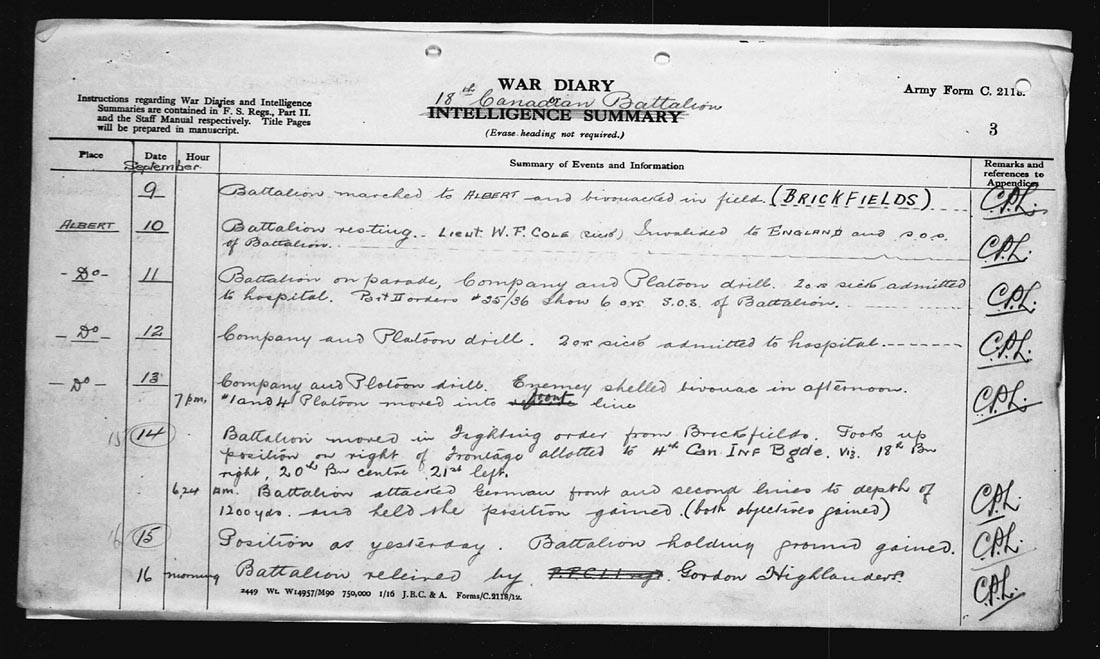 WAR DIARY
18th Canadian Battalion
or
INTELLIGENCE SUMMARY
(Erase heading not required.)
Instructions regarding War Diaries and Intelligence
Summaries are contained in F. S. Regs., Part II.
and the Staff Manual respectively. Title Pages
will be prepared in manuscript.
Army Form C. 2118.
3
Place Date Hour Summary of Events and Information Remarks and
references to
Appendices
September
9 Battalion marched to ALBERT and bivouacked in field. (BRICKFIELDS)
ALBERT 10 Battalion resting. Lieut. W. F. COLE (sick) Invalided to ENGLAND and S.O.S.
of Battalion.
- Do - 11 Battalion on parade, Company and Platoon drill. 2 ors sick admitted
to hospital. Part II orders #35/36 show 6 ors. S.O.S. of Battalion.
- Do - 12 Company and Platoon drill. 2 ors sick admitted to hospital.
- Do - 13 Company and Platoon drill. Enemey shelled bivouac in afternoon.
7 pm, #1 and 4 Platoon moved into front line
15 14 Battalion moved in Fighting order from Brickfields. Took up
position on right of Frontage allotted to 4th Can Inf Bgde. viz. 18th Bn
right, 20th Bn centre 21st left.
6,24 am. Battalion attacked German front and second lines to depth of
1200 yds. and held the position gained. (both objectives gained)
16 15 Position as yesterday. Battalion holding ground gained.
16 morning Battalion releived by Gordon Highlanders.
2449 Wt. W14957/M90 750,000 1/16 J.B.C. & A. Forms/C.2118/12.